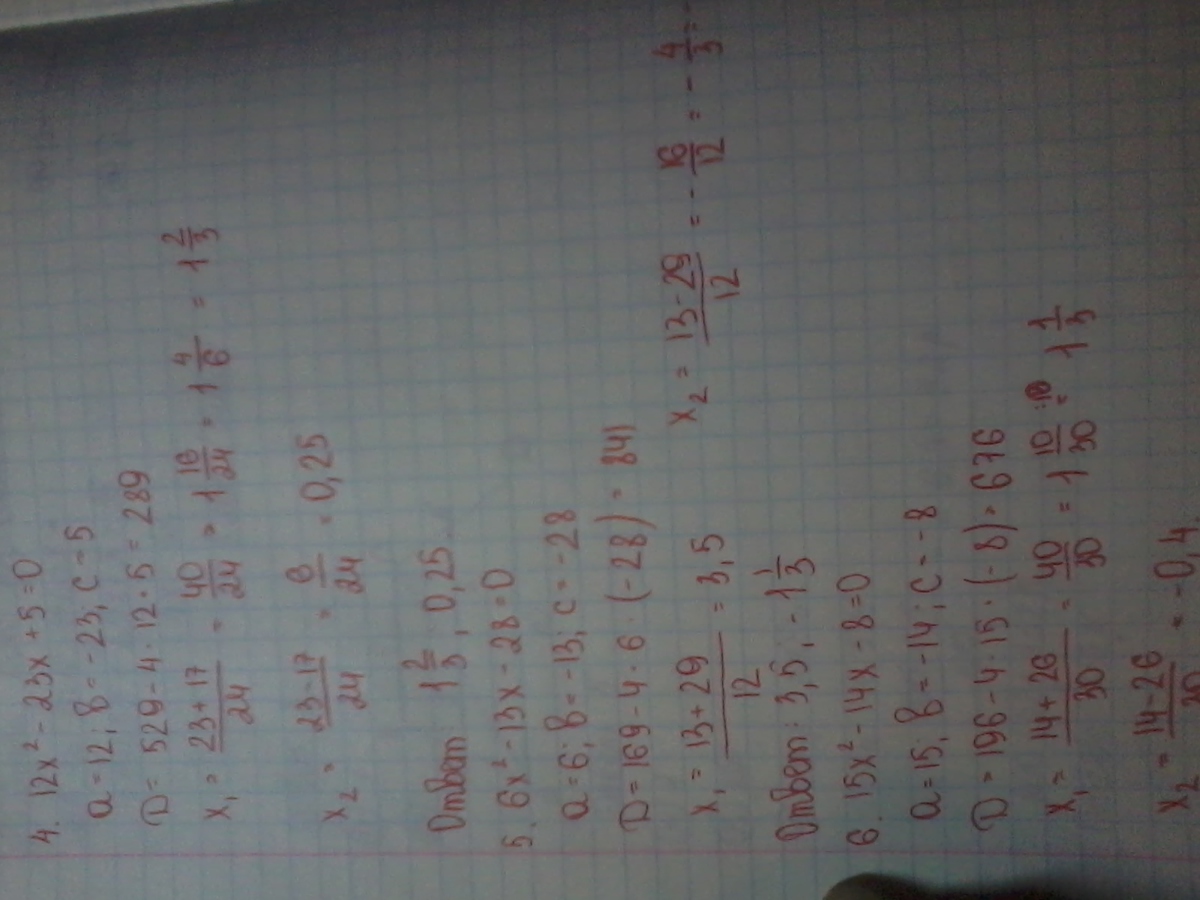 4. 12x² - 23x + 5 = 0
a = 12; b = -23; c = 5
D = 529 - 4 · 12 · 5 = 289
x₁ = (23 + 17)/24 = 40/24 = 1 16/24 = 1 4/6 = 1 2/3
x₂ = (23 - 17)/24 = 6/24 = 0,25
Ответ: 1 2/3; 0,25
5. 6x² - 13x - 28 = 0
a = 6; b = -13; c = -28
D = 169 - 4 · 6 · (-28) = 841
x₁ = (13 + 29)/12 = 3,5 x₂ = (13 - 29)/12 = - 16/12 = - 4/3 =
Ответ: 3,5; -1 1/3
6. 15x² - 14x - 8 = 0
a = 15; b = -14; c = -8
D = 196 - 4 · 15 · (-8) = 676
x₁ = (14 + 26)/30 = 40/30 = 1 10/30 = 1 1/3
x₂ = (14 - 26)/30 = -0,4